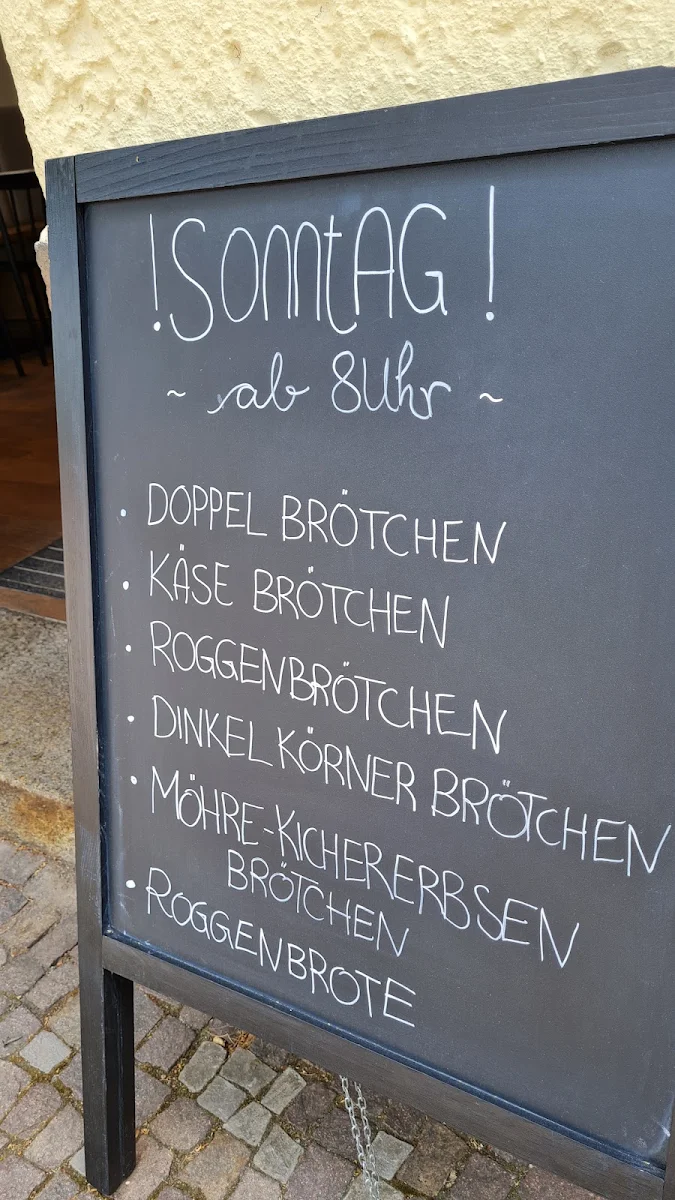 !SONNTAG!
~ ab 8Uhr ~
• DOPPEL BRÖTCHEN
• KÄSE BRÖTCHEN
• ROGGENBRÖTCHEN
• DINKEL KÖRNER BRÖTCHEN
• MÖHRE-KICHERERBSEN
BRÖTCHEN
• ROGGENBROTE